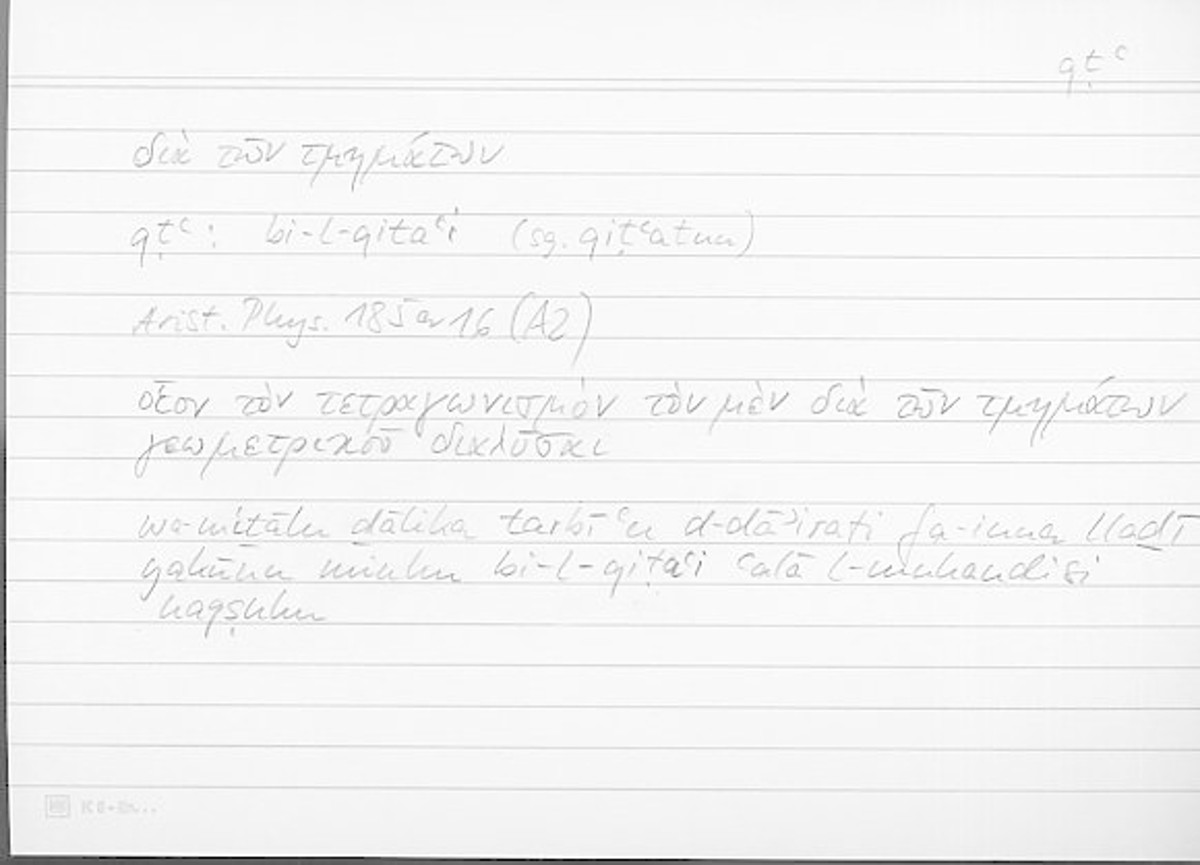 qṭʿ
διὰ τῶν τμημάτων
qṭʿ: bi-l-qitaʿi (sg. qiṭʿatun)
Arist. Phys. 185a16 (A2)
οἷον τὸν τετραγωνισμὸν τὸν μὲν διὰ τῶν τμημάτων
γεωμετρικοῦ διαλῦσαι
wa-mitālu dālika tarbīʿu d-dāʾirati fa-inna lladī
yakūnu minhu bi-l-qiṭaʿi ʿalā l-muhandisi
naqṣuhu